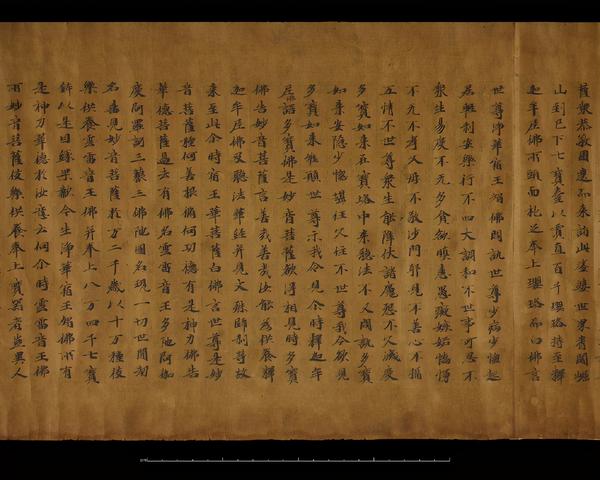 薩衆恭敬圍遶而來詣此娑婆世界耆闍崛
山到已下七寶臺以賈直百千瓔珞持至釋
迦牟尼佛所頭面礼足奉上瓔珞而白佛言
世尊淨華宿王智佛問訊世尊少病少惱起
居輕利安樂行不四大調和不世事可忍不
衆生易度不无多貪欲瞋恚愚癡嫉妬慳慢
不无不孝父母不敬沙門耶見不善心不攝
五情不世尊衆生能降伏諸魔怨不久滅度
多寶如來在寶塔中來聽法不又問訊多寶
如來安隱少惱堪任久住不世尊我今欲見
多寶如來唯願世尊示我令見尒時釋迦牟
尼佛語多寶佛是妙音菩薩欲得相見時多寶
佛告妙音菩薩言善哉善哉汝能爲供養釋
迦牟尼佛及聽法華經并見文殊師利等故
來至此尒時宿王華菩薩白佛言世尊是妙
音菩薩種何善根脩何功德有是神力佛告
華德菩薩過去有佛名雲雷音王多陁阿伽
度阿羅訶三藐三佛陁國名現一切世間劫
名憙見妙音菩薩於万二千歲以十万種伎
樂供養雲雷音王佛并奉上八万四千七寶
鉢以是因緣果報今生淨華宿王智佛所有
是神力華德於汝意云何尒時雲雷音王佛
所妙音菩薩伎樂供養奉上寶器者豈異人